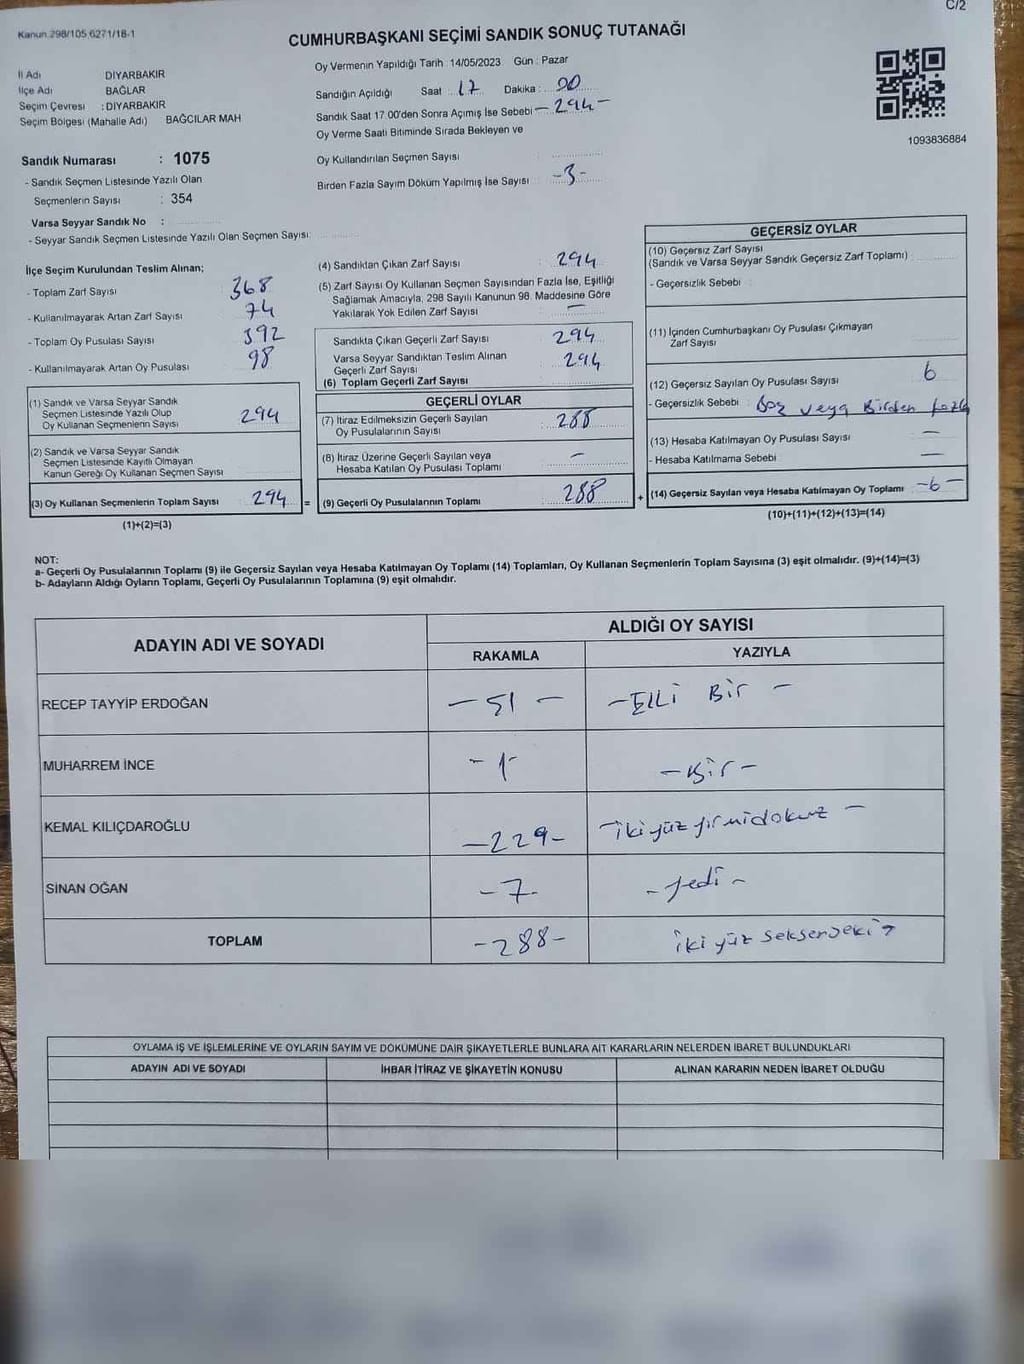 C/2
Kanun 298/105 6271/18-1
CUMHURBAŞKANI SEÇİMİ SANDIK SONUÇ TUTANAĞI
İl Adı DİYARBAKIR
İlçe Adı BAĞLAR
Seçim Çevresi : DİYARBAKIR
Seçim Bölgesi (Mahalle Adı) BAĞCILAR MAH
Oy Vermenin Yapıldığı Tarih 14/05/2023 Gün : Pazar
Sandığın Açıldığı Saat 17 Dakika : 00
Sandık Saat 17 00'den Sonra Açımış İse Sebebi - 294 -
Oy Verme Saati Bitiminde Sırada Bekleyen ve
Oy Kullandırılan Seçmen Sayısı
Birden Fazla Sayım Döküm Yapılmış İse Sayısı -3-
1093836884
Sandık Numarası : 1075
- Sandık Seçmen Listesinde Yazılı Olan
Seçmenlerin Sayısı : 354
Varsa Seyyar Sandık No :
- Seyyar Sandık Seçmen Listesinde Yazılı Olan Seçmen Sayısı:
İlçe Seçim Kurulundan Teslim Alınan;
- Toplam Zarf Sayısı 368
- Kullanılmayarak Artan Zarf Sayısı 74
- Toplam Oy Pusulası Sayısı 392
- Kullanılmayarak Artan Oy Pusulası 98
(1) Sandık ve Varsa Seyyar Sandık
Seçmen Listesinde Yazılı Olup
Oy Kullanan Seçmenlerin Sayısı 294
(2) Sandık ve Varsa Seyyar Sandık
Seçmen Listesinde Kayıtlı Olmayan
Kanun Gereği Oy Kullanan Seçmen Sayısı
(3) Oy Kullanan Seçmenlerin Toplam Sayısı 294 =
(1)+(2)=(3)
(4) Sandıktan Çıkan Zarf Sayısı 294
(5) Zarf Sayısı Oy Kullanan Seçmen Sayısından Fazla İse, Eşitliği
Sağlamak Amacıyla, 298 Sayılı Kanunun 98. Maddesine Göre
Yakılarak Yok Edilen Zarf Sayısı -
Sandıkta Çıkan Geçerli Zarf Sayısı 294
Varsa Seyyar Sandıktan Teslim Alınan
Geçerli Zarf Sayısı 294
(6) Toplam Geçerli Zarf Sayısı
GEÇERLİ OYLAR
(7) İtiraz Edilmeksizin Geçerli Sayılan
Oy Pusulalarının Sayısı 288
(8) İtiraz Üzerine Geçerli Sayılan veya
Hesaba Katılan Oy Pusulası Toplamı -
(9) Geçerli Oy Pusulalarının Toplamı 288 +
GEÇERSİZ OYLAR
(10) Geçersiz Zarf Sayısı
(Sandık ve Varsa Seyyar Sandık Geçersiz Zarf Toplamı) :
- Geçersizlik Sebebi :
(11) İçinden Cumhurbaşkanı Oy Pusulası Çıkmayan
Zarf Sayısı
(12) Geçersiz Sayılan Oy Pusulası Sayısı 6
- Geçersizlik Sebebi : Boş veya Birden fazla
(13) Hesaba Katılmayan Oy Pusulası Sayısı -
- Hesaba Katılmama Sebebi -
(14) Geçersiz Sayılan veya Hesaba Katılmayan Oy Toplamı -6-
(10)+(11)+(12)+(13)=(14)
NOT:
a- Geçerli Oy Pusulalarının Toplamı (9) ile Geçersiz Sayılan veya Hesaba Katılmayan Oy Toplamı (14) Toplamları, Oy Kullanan Seçmenlerin Toplam Sayısına (3) eşit olmalıdır. (9)+(14)=(3)
b- Adayların Aldığı Oyların Toplamı, Geçerli Oy Pusulalarının Toplamına (9) eşit olmalıdır.
ADAYIN ADI VE SOYADI ALDIĞI OY SAYISI
RAKAMLA YAZIYLA
RECEP TAYYİP ERDOĞAN - 51 - - Elli Bir -
MUHARREM İNCE - 1 - - Bir -
KEMAL KILIÇDAROĞLU - 229 - - iki yüz yirmidokuz -
SİNAN OĞAN - 7 - - yedi -
TOPLAM - 288 - iki yüz seksensekiz
OYLAMA İŞ VE İŞLEMLERİNE VE OYLARIN SAYIM VE DÖKÜMÜNE DAİR ŞİKAYETLERLE BUNLARA AİT KARARLARIN NELERDEN İBARET BULUNDUKLARI
ADAYIN ADI VE SOYADI İHBAR İTİRAZ VE ŞİKAYETİN KONUSU ALINAN KARARIN NEDEN İBARET OLDUĞU